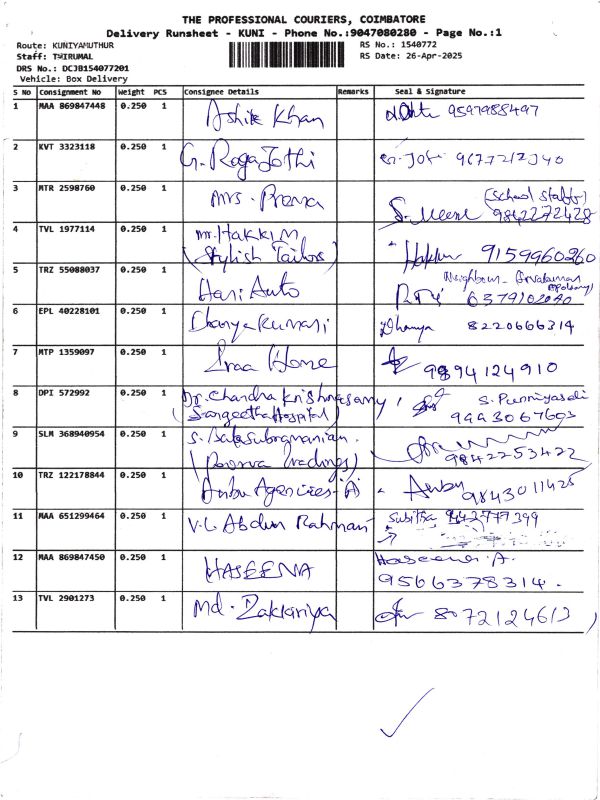 THE PROFESSIONAL COURIERS, COIMBATORE
Delivery Runsheet - KUNI - Phone No.:9047080280 - Page No.:1
Route: KUNIYAMUTHUR RS No.: 1540772
Staff: THIRUMAL RS Date: 26-Apr-2025
DRS No.: DCJB154077201
Vehicle: Box Delivery
S No Consignment No Weight PCS Consignee Details Remarks Seal & Signature
1 MAA 869847448 0.250 1 Ashik Khan 9597988497
2 KVT 3323118 0.250 1 G. Roga Jothi 9677212340
3 MTR 2598760 0.250 1 Mrs. Prema (School staff)
S. Meena 9842272428
4 TVL 1977114 0.250 1 Mr. HAKKIM
(Stylish Tailors) Hakkim 9159960260
5 TRZ 55088037 0.250 1 Hari Auto Neighbour
6379102040
6 EPL 40228101 0.250 1 Dhanya Kumari Dhanya 8220666314
7 MTP 1359097 0.250 1 Home 9894124910
8 DPI 572992 0.250 1 Dr. Chandra Krishnasamy
(Sangeetha Hospital) S.
9993067693
9 SLM 368940954 0.250 1 S. Balasubramanian.
(Poorva Tradings) 9842253422
10 TRZ 122178844 0.250 1 Anbu Agencies - A Anbu 9843011425
11 MAA 651299464 0.250 1 V.L. Abdur Rahman Subitha 9442777399
12 MAA 869847450 0.250 1 HASEENA Haseena. A.
9566378314.
13 TVL 2901273 0.250 1 Md. Zakkariya 8072124613